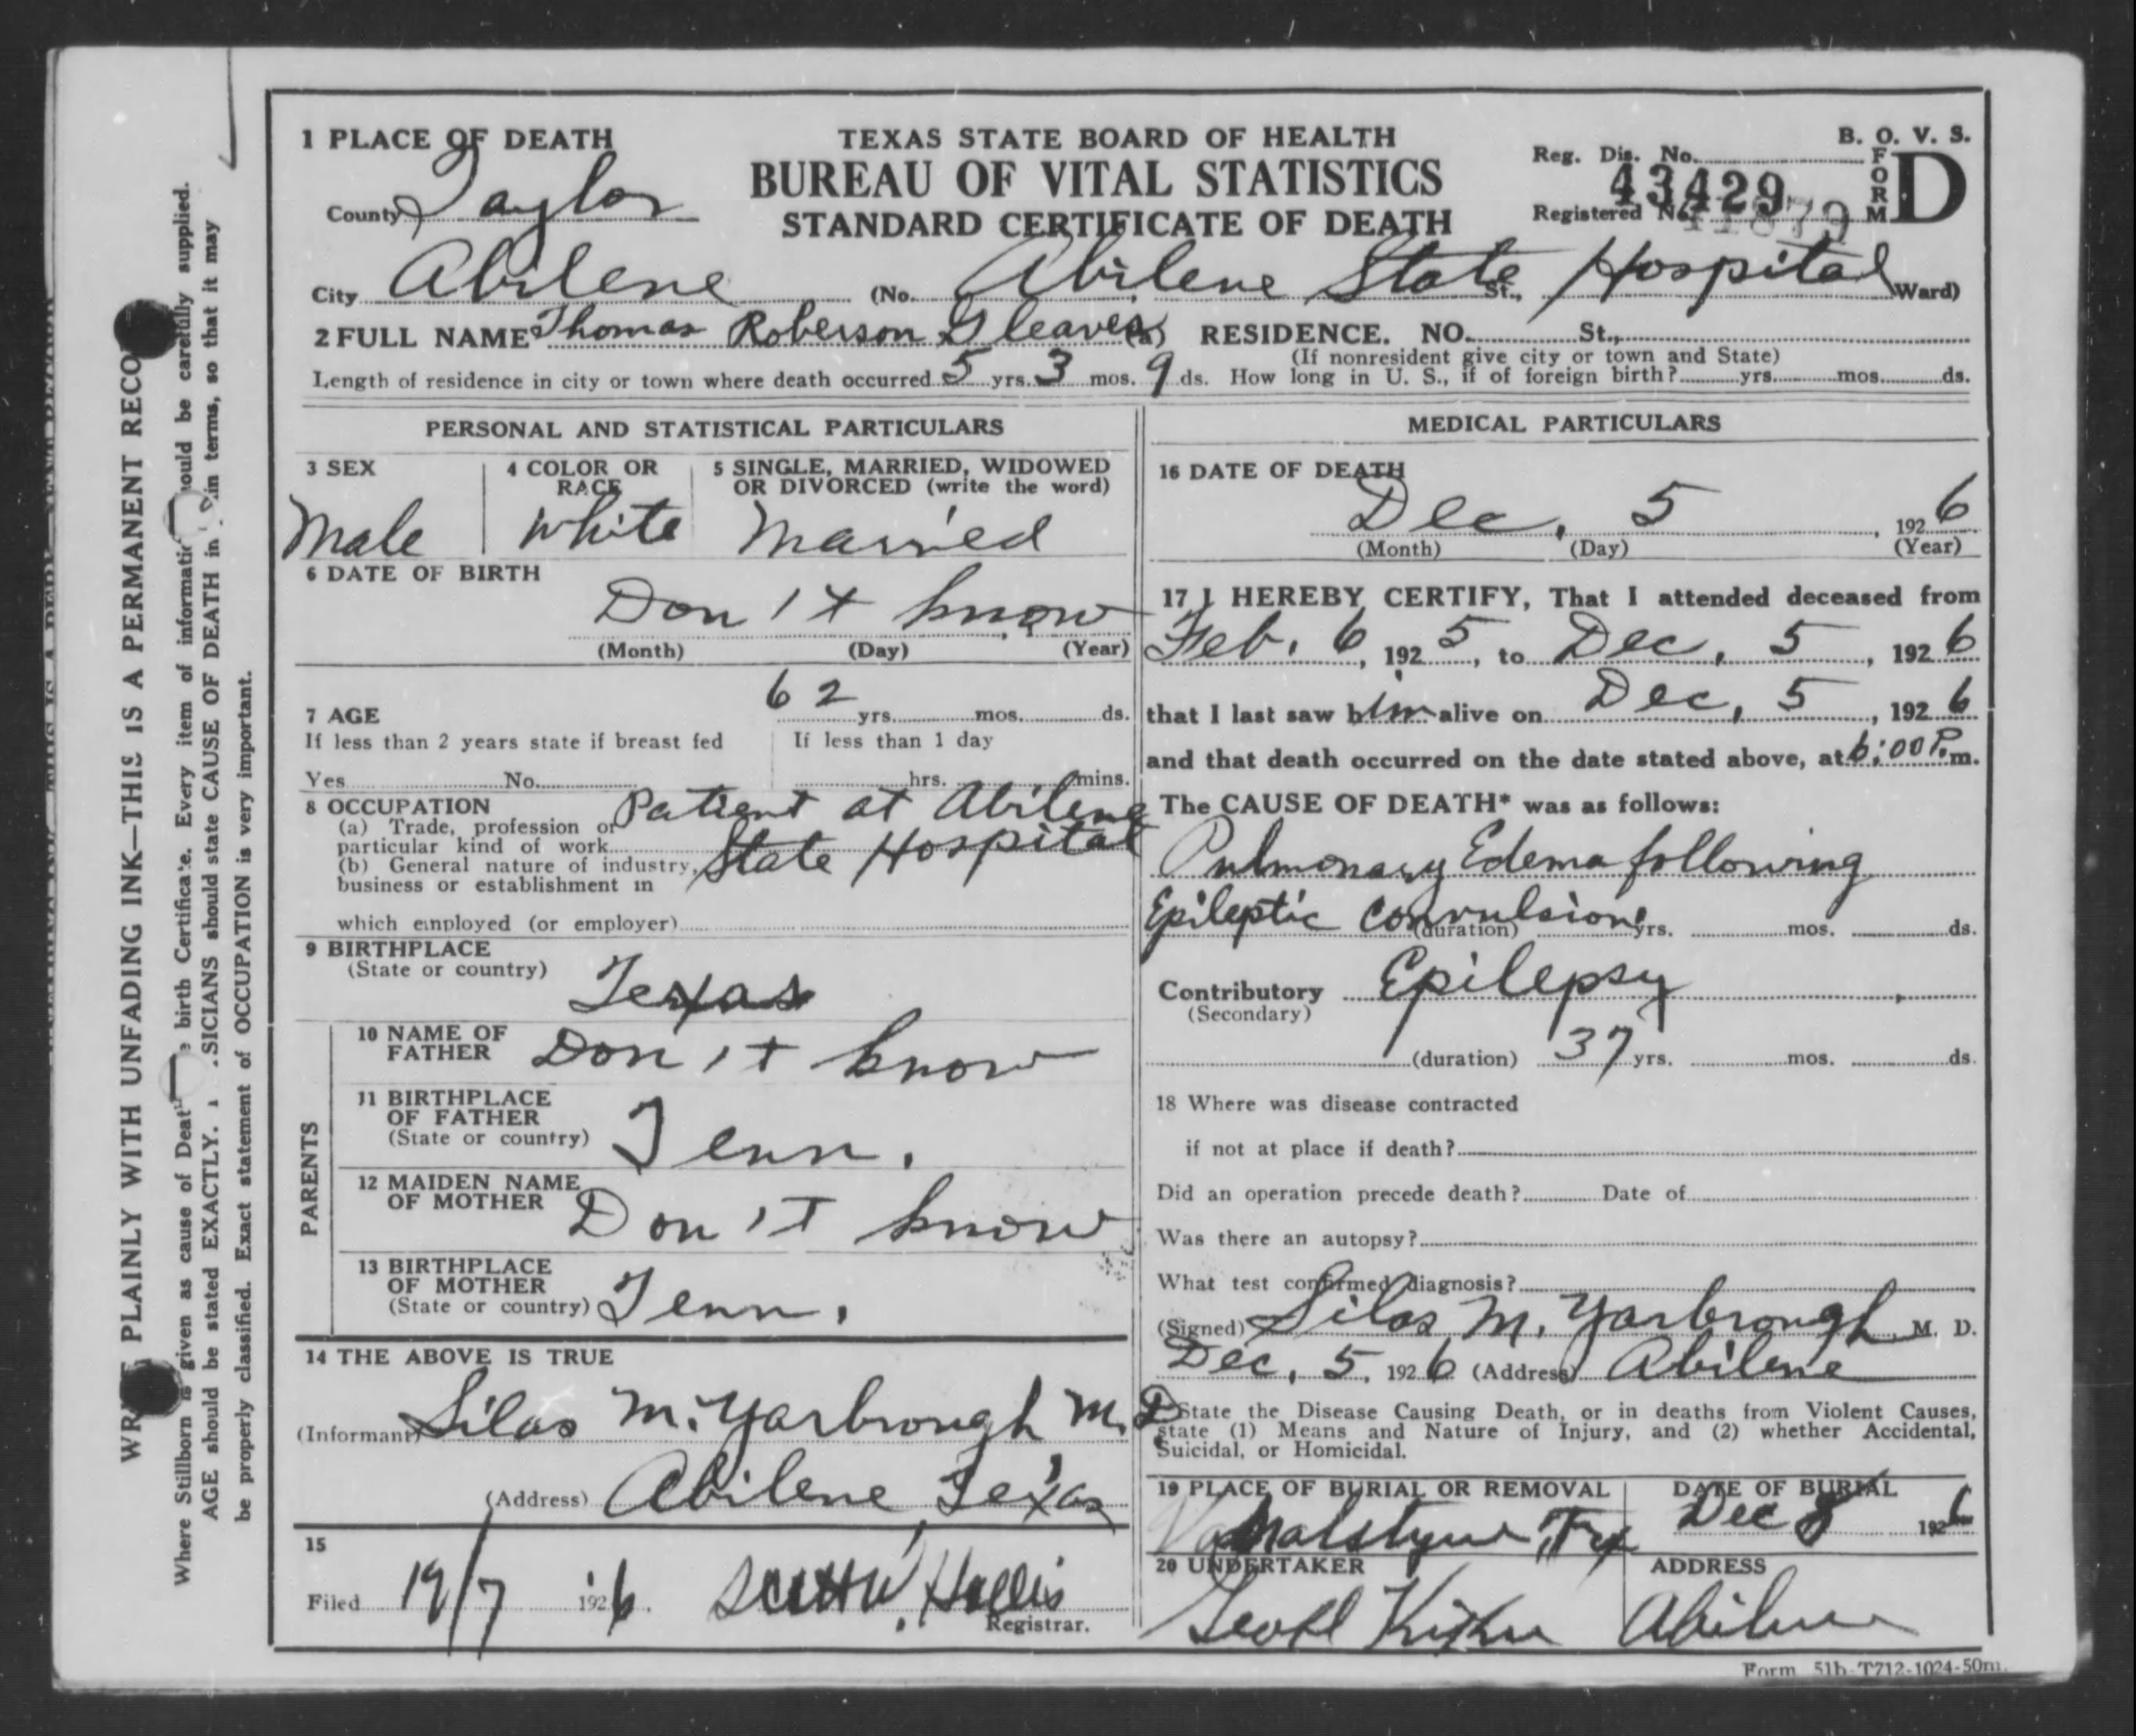 1 PLACE OF DEATH
County Taylor
TEXAS STATE BOARD OF HEALTH
BUREAU OF VITAL STATISTICS
STANDARD CERTIFICATE OF DEATH
B. O. V. S.
FORM D
Reg. Dis. No.
43429
Registered No. 41879
City Abilene (No. Abilene State St., Hospital Ward)
2 FULL NAME Thomas Roberson Gleaves (a) RESIDENCE. NO. St.,
(If nonresident give city or town and State)
Length of residence in city or town where death occurred 5 yrs. 3 mos. 9 ds. How long in U. S., if of foreign birth? yrs. mos. ds.
PERSONAL AND STATISTICAL PARTICULARS
3 SEX
Male
4 COLOR OR RACE
White
5 SINGLE, MARRIED, WIDOWED
OR DIVORCED (write the word)
Married
6 DATE OF BIRTH
Don't know
(Month) (Day) (Year)
7 AGE 62 yrs. mos. ds.
If less than 2 years state if breast fed
Yes No.
If less than 1 day
hrs. mins.
8 OCCUPATION
(a) Trade, profession or
particular kind of work
Patient at Abilene
(b) General nature of industry,
business or establishment in
State Hospital
which employed (or employer)
9 BIRTHPLACE
(State or country) Texas
PARENTS
10 NAME OF
FATHER Don't know
11 BIRTHPLACE
OF FATHER
(State or country) Tenn.
12 MAIDEN NAME
OF MOTHER Don't know
13 BIRTHPLACE
OF MOTHER
(State or country) Tenn.
14 THE ABOVE IS TRUE
(Informant) Silas M. Yarbrough M.D
(Address) Abilene Texas
15
Filed 12/7 1926 Scott W. Hollis
Registrar.
MEDICAL PARTICULARS
16 DATE OF DEATH
Dec. 5, 1926
(Month) (Day) (Year)
17 I HEREBY CERTIFY, That I attended deceased from
Feb. 6, 1925, to Dec. 5, 1926
that I last saw him alive on Dec. 5, 1926
and that death occurred on the date stated above, at 6:00 P.m.
The CAUSE OF DEATH* was as follows:
Pulmonary Edema following
Epileptic Convulsions (duration) yrs. mos. ds.
Contributory Epilepsy
(Secondary)
(duration) 37 yrs. mos. ds.
18 Where was disease contracted
if not at place if death?
Did an operation precede death? Date of
Was there an autopsy?
What test confirmed diagnosis?
(Signed) Silas M. Yarbrough, M. D.
Dec. 5, 1926 (Address) Abilene
State the Disease Causing Death, or in deaths from Violent Causes,
state (1) Means and Nature of Injury, and (2) whether Accidental,
Suicidal, or Homicidal.
19 PLACE OF BURIAL OR REMOVAL
Tex
DATE OF BURIAL
Dec 8 1926
20 UNDERTAKER
ADDRESS
Abilene
Form 51b-T712-1024-50m.
PLAINLY WITH UNFADING INK—THIS IS A PERMANENT
Where Stillborn is given as cause of birth Certificate. Every item of should be carefully supplied.
AGE should be stated EXACTLY. should state CAUSE OF DEATH in terms, so that it may
be properly classified. Exact statement of OCCUPATION is very important.